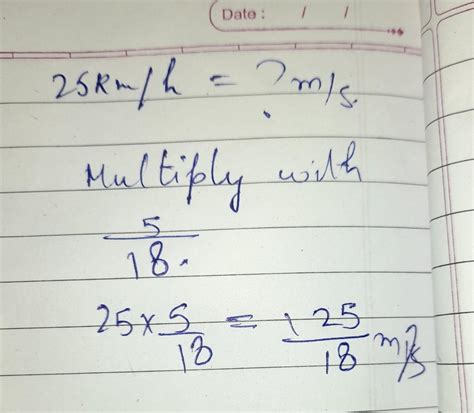 Date : / /
25Km/h = ? m/s.
Multiply with
5/18.
25 × 5/18 = 125/18 m/s